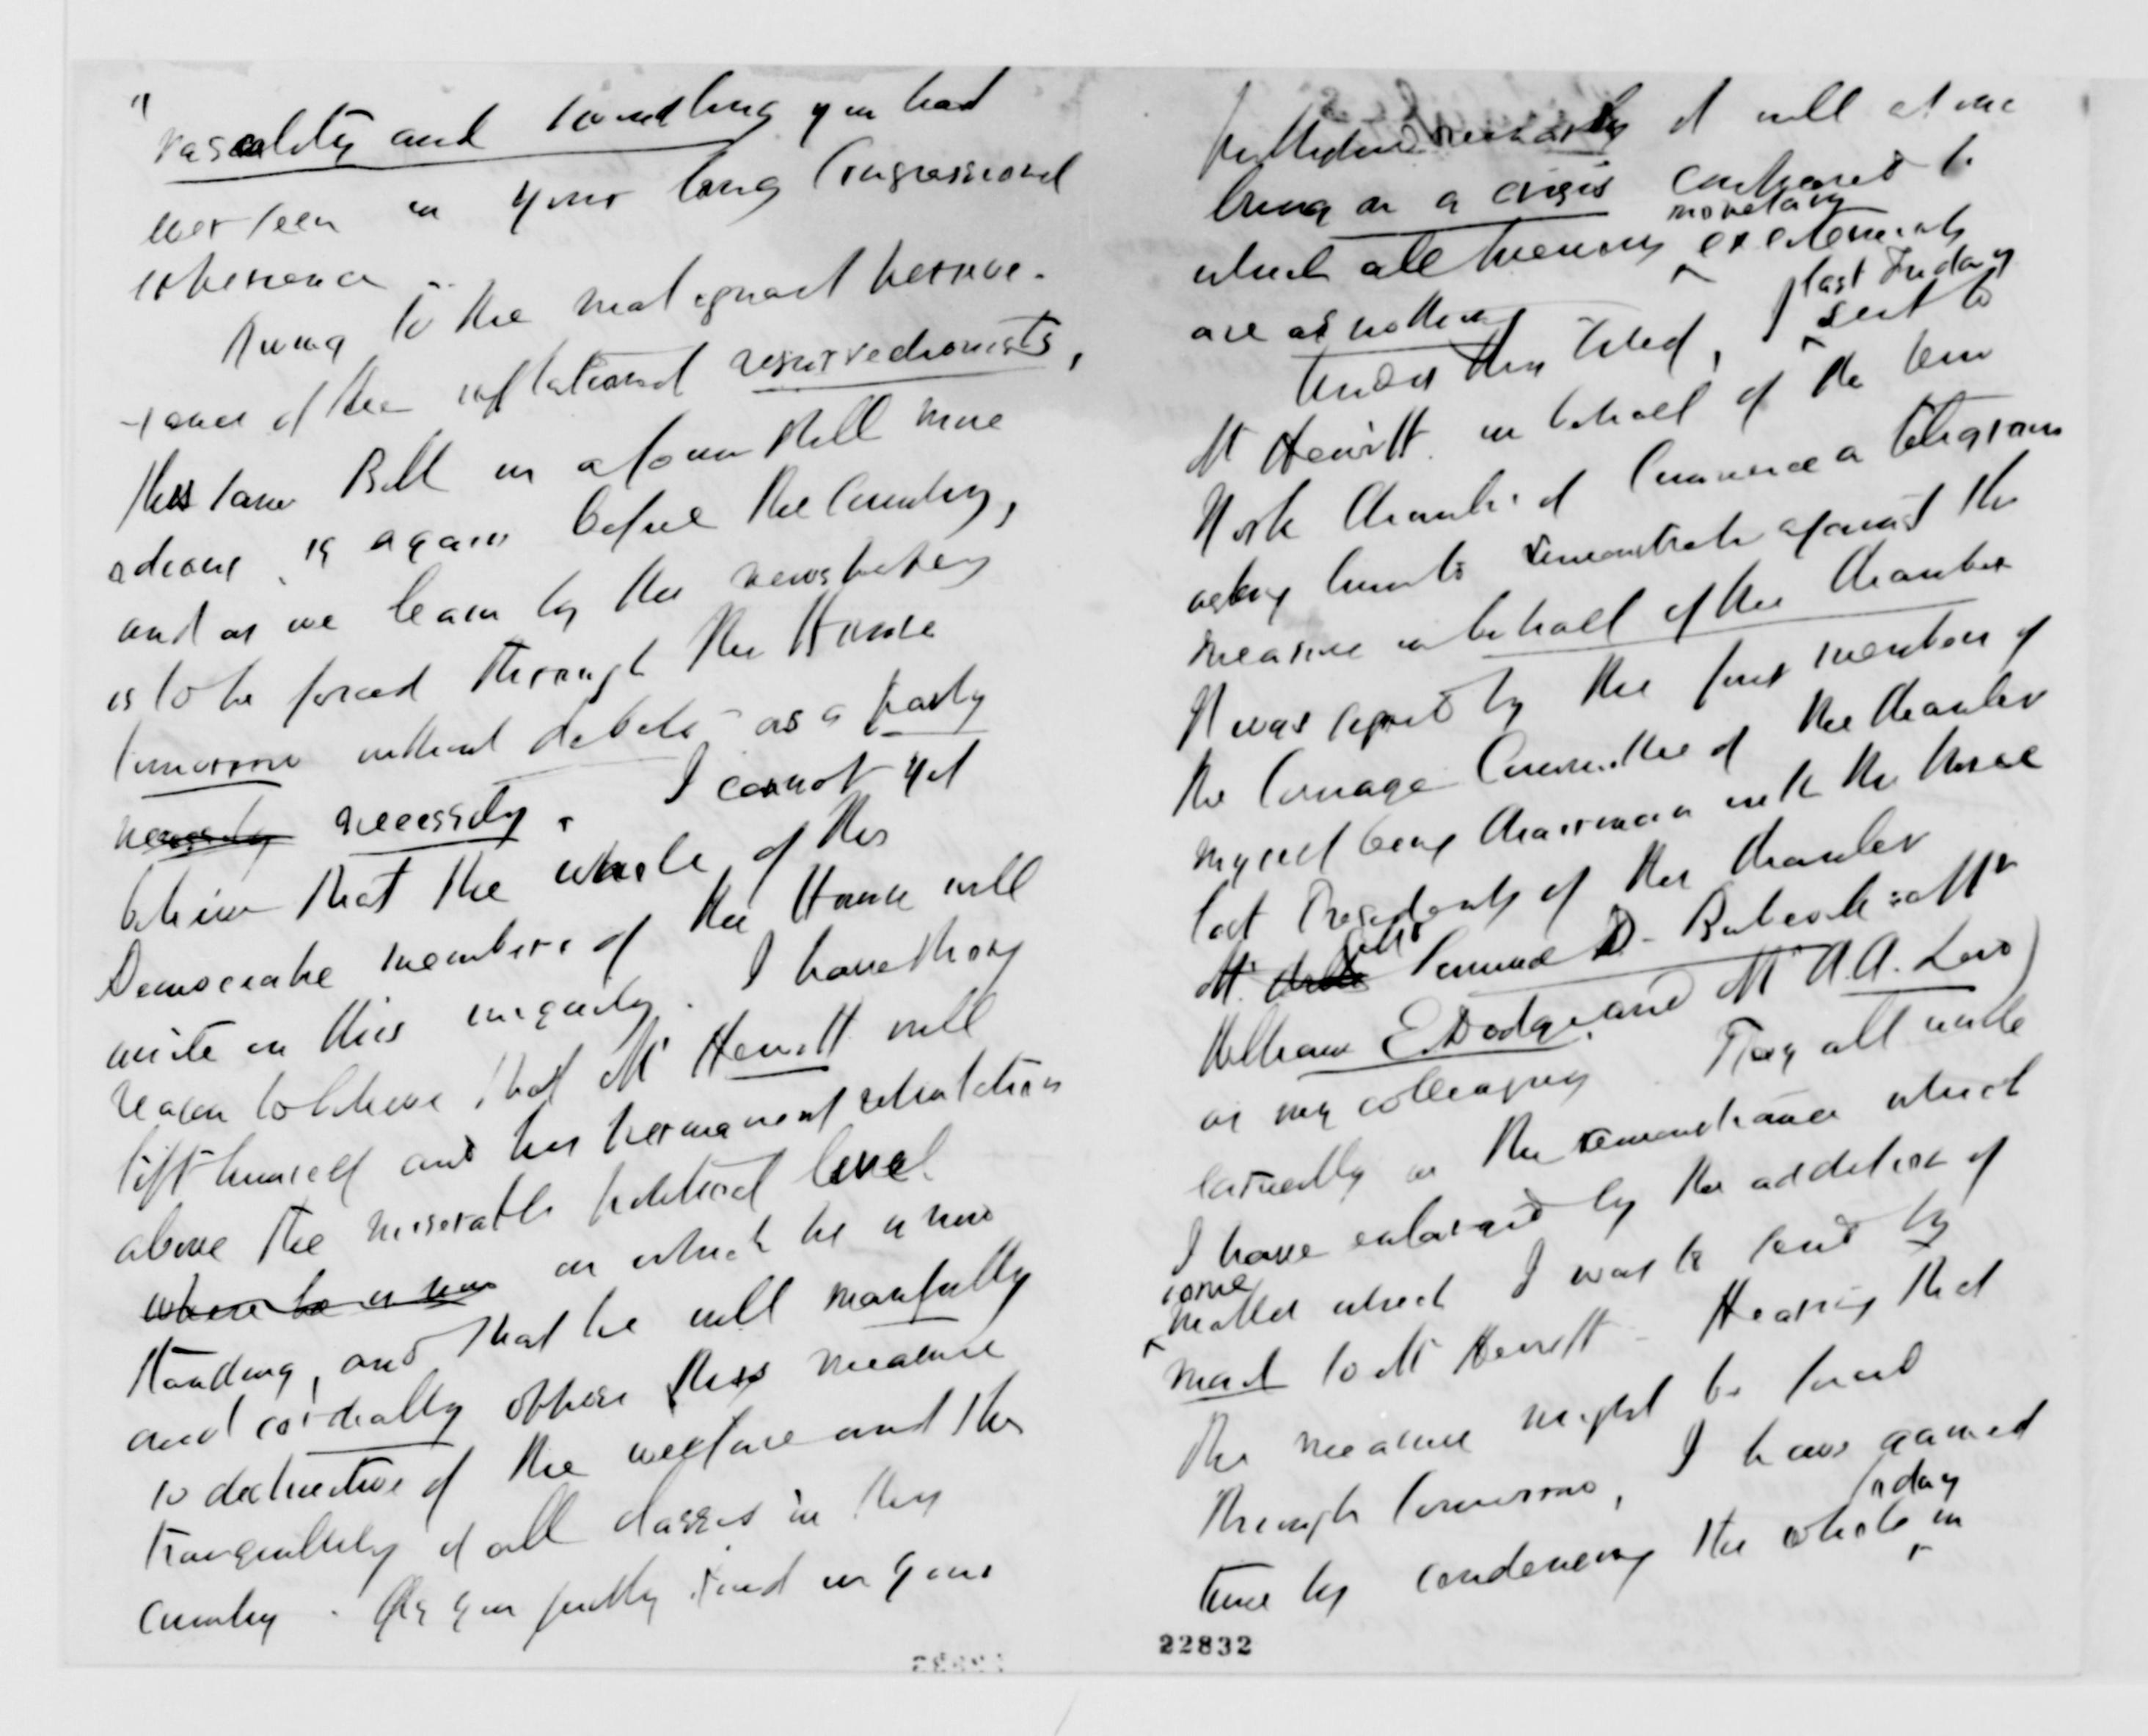 "
rascality and swindling you had
ever seen in your long Congressional
experience".
Owing to the malignant persever-
-ance of the inflationist resurrectionists,
this same Bill in a form still more
odious, is again before the Country,
and as we learn by the newspapers
is to be forced through the House
tomorrow without debate - as a party
necessity necessity. I cannot yet
believe that the whole of the
Democratic members of the House will
unite in this iniquity. I have strong
reason to believe that Mr Hewitt will
lift himself and his permanent reputation
above the miserable political level
where he is now on which he is now
standing, and that he will manfully
and cordially oppose this measure
so destructive of the welfare and the
tranquillity of all classes in this
Country. As you justly said in your
it will at once
bring on a crisis compared to
which all previous monetary excitements
are as nothing
Under this , I last Friday sent to
Mr Hewitt in behalf of the New
York Chamber of Commerce a telegram
asking him to remonstrate against the
measure in behalf of the Chamber
It was signed by the four members of
the Coinage Committee of the Chamber
myself being Chairman with the three
last Presidents of the Chamber
Mr Samuel D. Babcock - Mr
William E. Dodge, and Mr A. A. Low)
as my colleagues. They all unite
earnestly in the remonstrance which
I have enlarged by the addition of
some matter which I was to send by
mail to Mr Hewitt - Hearing that
the measure might be forced
through tomorrow, I have gained
time by condensing the whole today in
22832